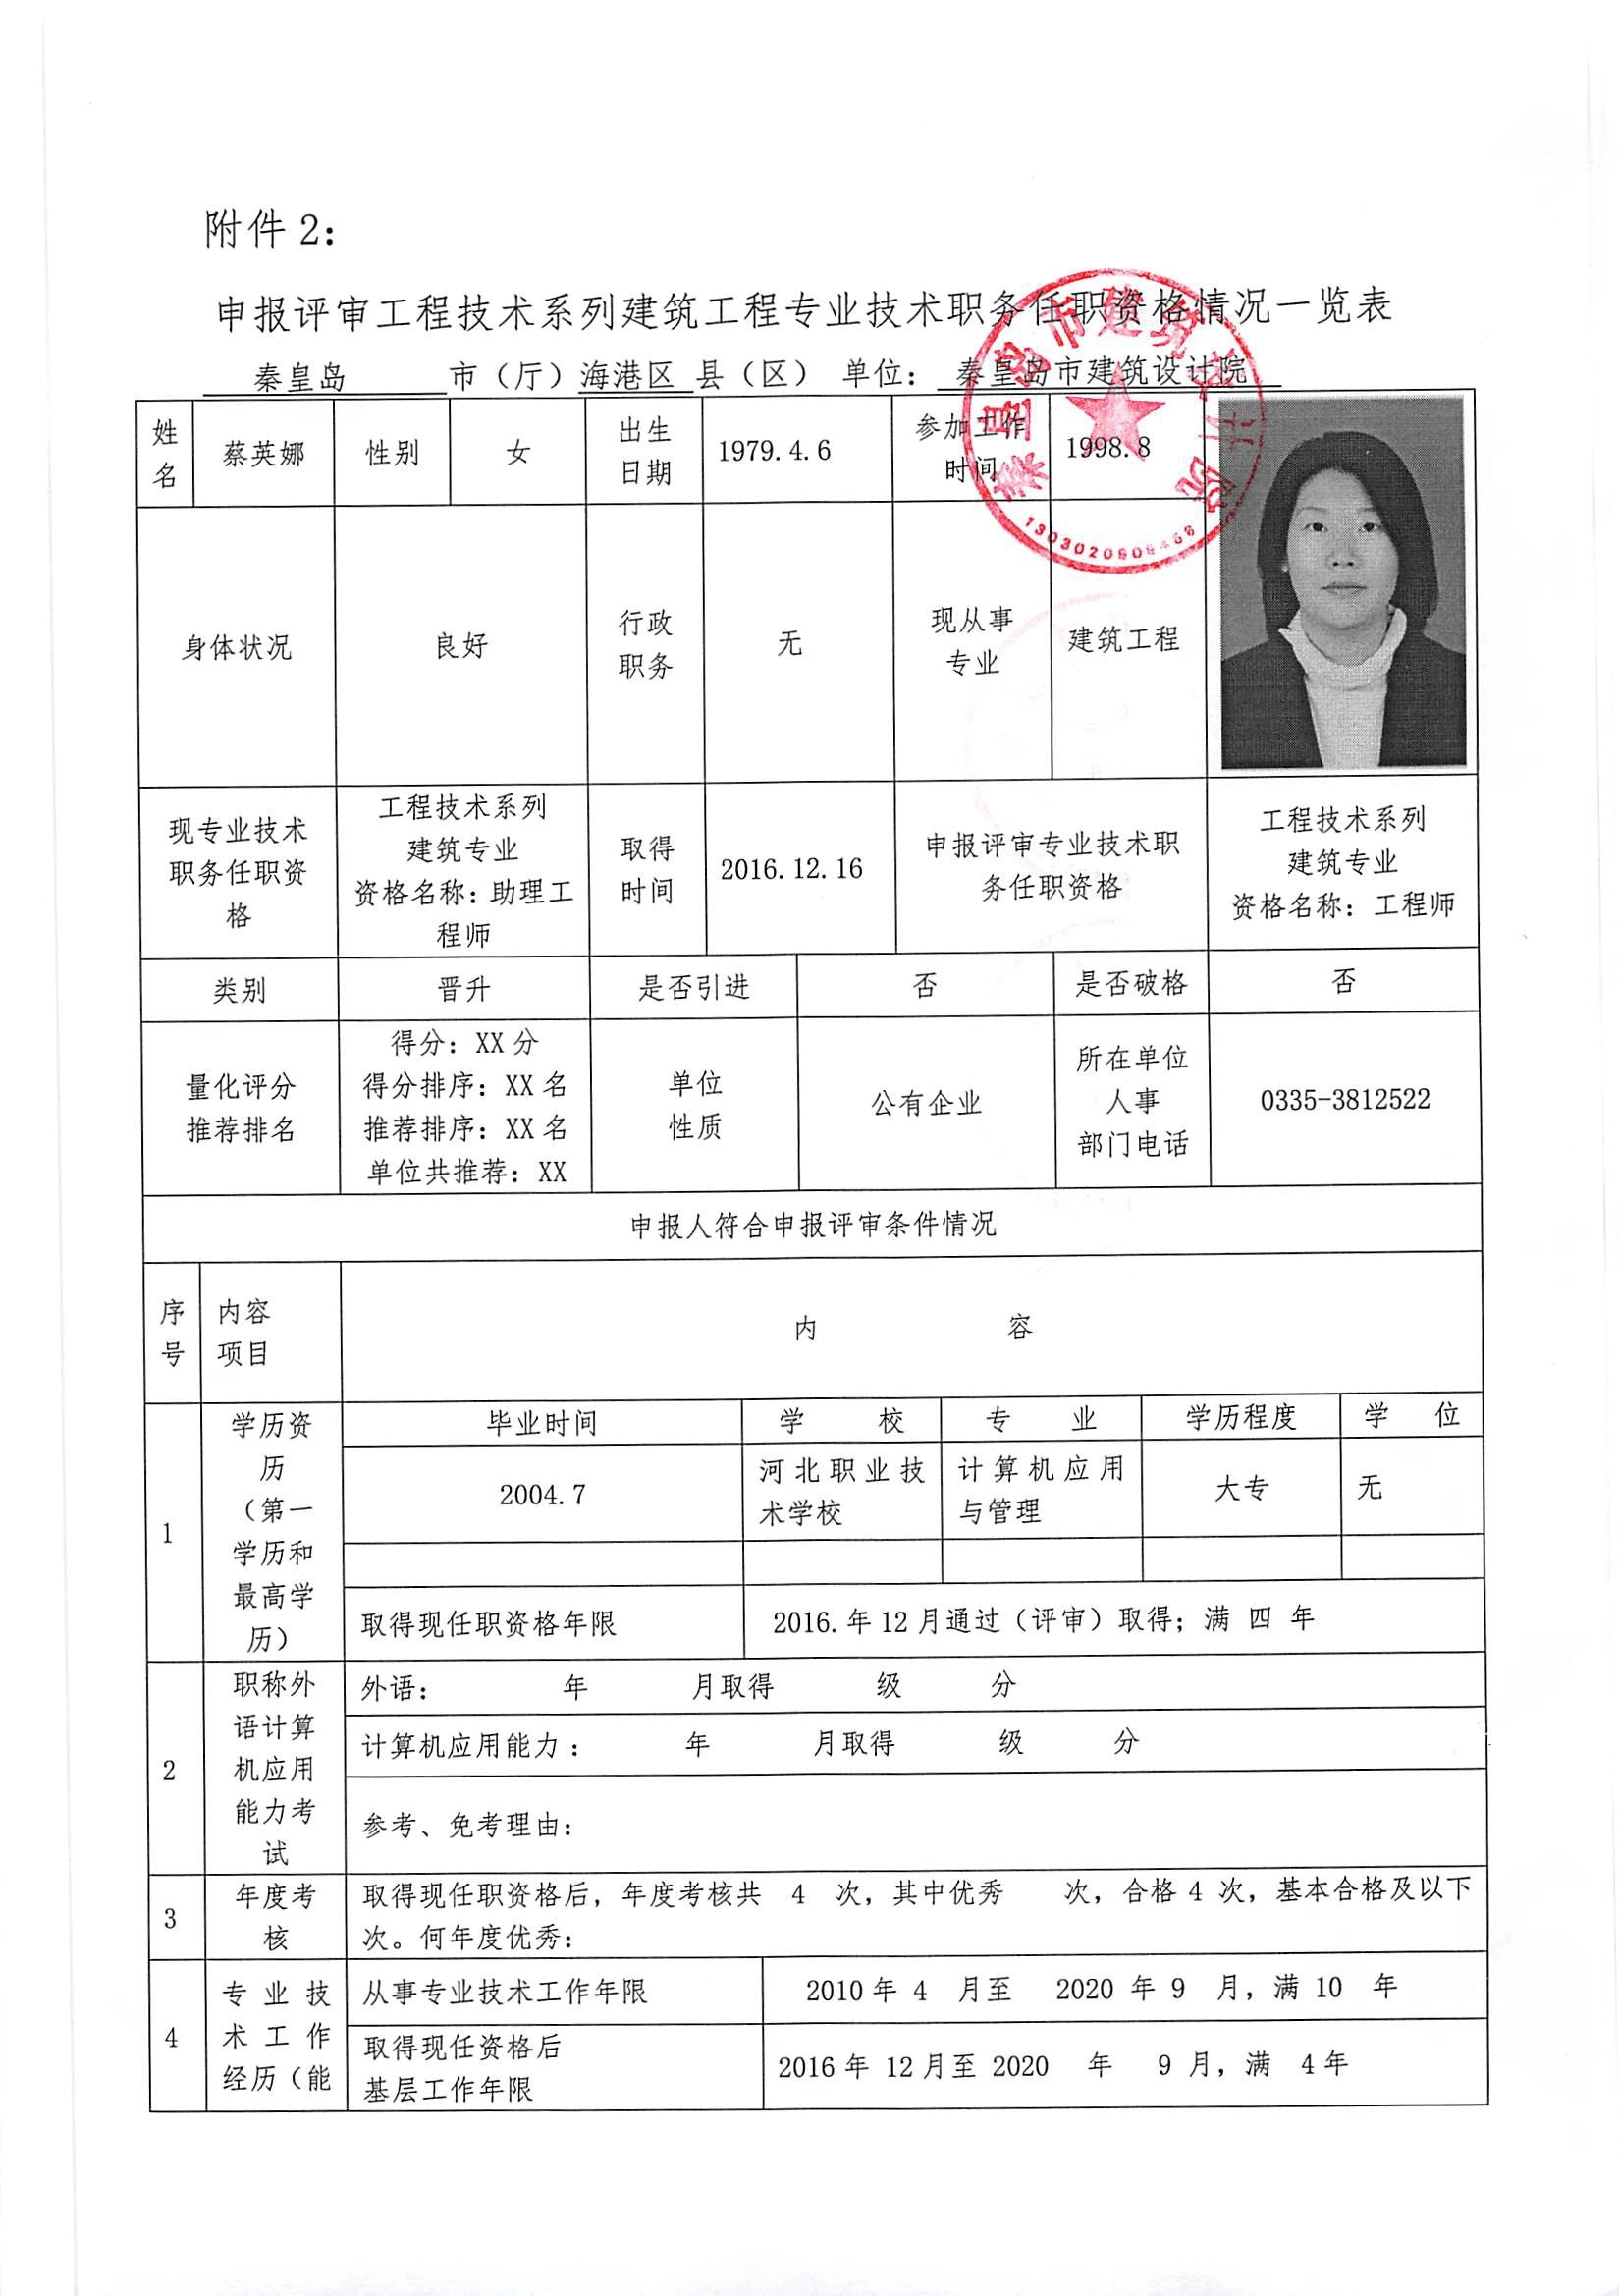 附件 2：
申报评审工程技术系列建筑工程专业技术职务任职资格情况一览表
秦皇岛 市（厅）海港区 县（区） 单位： 秦皇岛市建筑设计院
姓名 蔡英娜 性别 女 出生日期 1979.4.6 参加工作时间 1998.8
秦皇岛市建筑设计院
身体状况 良好 行政职务 无 现从事专业 建筑工程
现专业技术职务任职资格
工程技术系列
建筑专业
资格名称：助理工程师
取得时间 2016.12.16
申报评审专业技术职务任职资格
工程技术系列
建筑专业
资格名称：工程师
类别 晋升 是否引进 否 是否破格 否
量化评分
推荐排名
得分：XX 分
得分排序：XX 名
推荐排序：XX 名
单位共推荐：XX
单位性质 公有企业
所在单位
人事
部门电话
0335-3812522
申报人符合申报评审条件情况
序号 内容项目 内 容
1
学历资历（第一学历和最高学历）
毕业时间 学 校 专 业 学历程度 学 位
2004.7 河北职业技术学校 计算机应用与管理 大专 无
取得现任职资格年限 2016.年 12 月通过（评审）取得；满 四 年
2
职称外语计算机应用能力考试
外语： 年 月取得 级 分
计算机应用能力： 年 月取得 级 分
参考、免考理由：
3
年度考核
取得现任职资格后，年度考核共 4 次，其中优秀 次，合格 4 次，基本合格及以下
次。何年度优秀：
4
专业技术工作经历（能
从事专业技术工作年限 2010 年 4 月至 2020 年 9 月，满 10 年
取得现任资格后
基层工作年限
2016 年 12 月至 2020 年 9 月，满 4 年